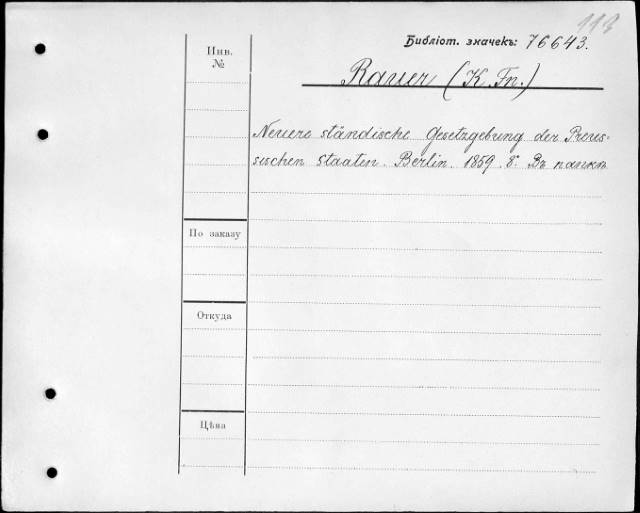 113
Библіот. значекъ: 76643.
Инв.
№
Rauer (K. Fr.)
Neuere ständische Gesetzgebung der Preus-
sischen Staaten. Berlin. 1859. 8º. Въ папкѣ
По заказу
Откуда
Цѣна